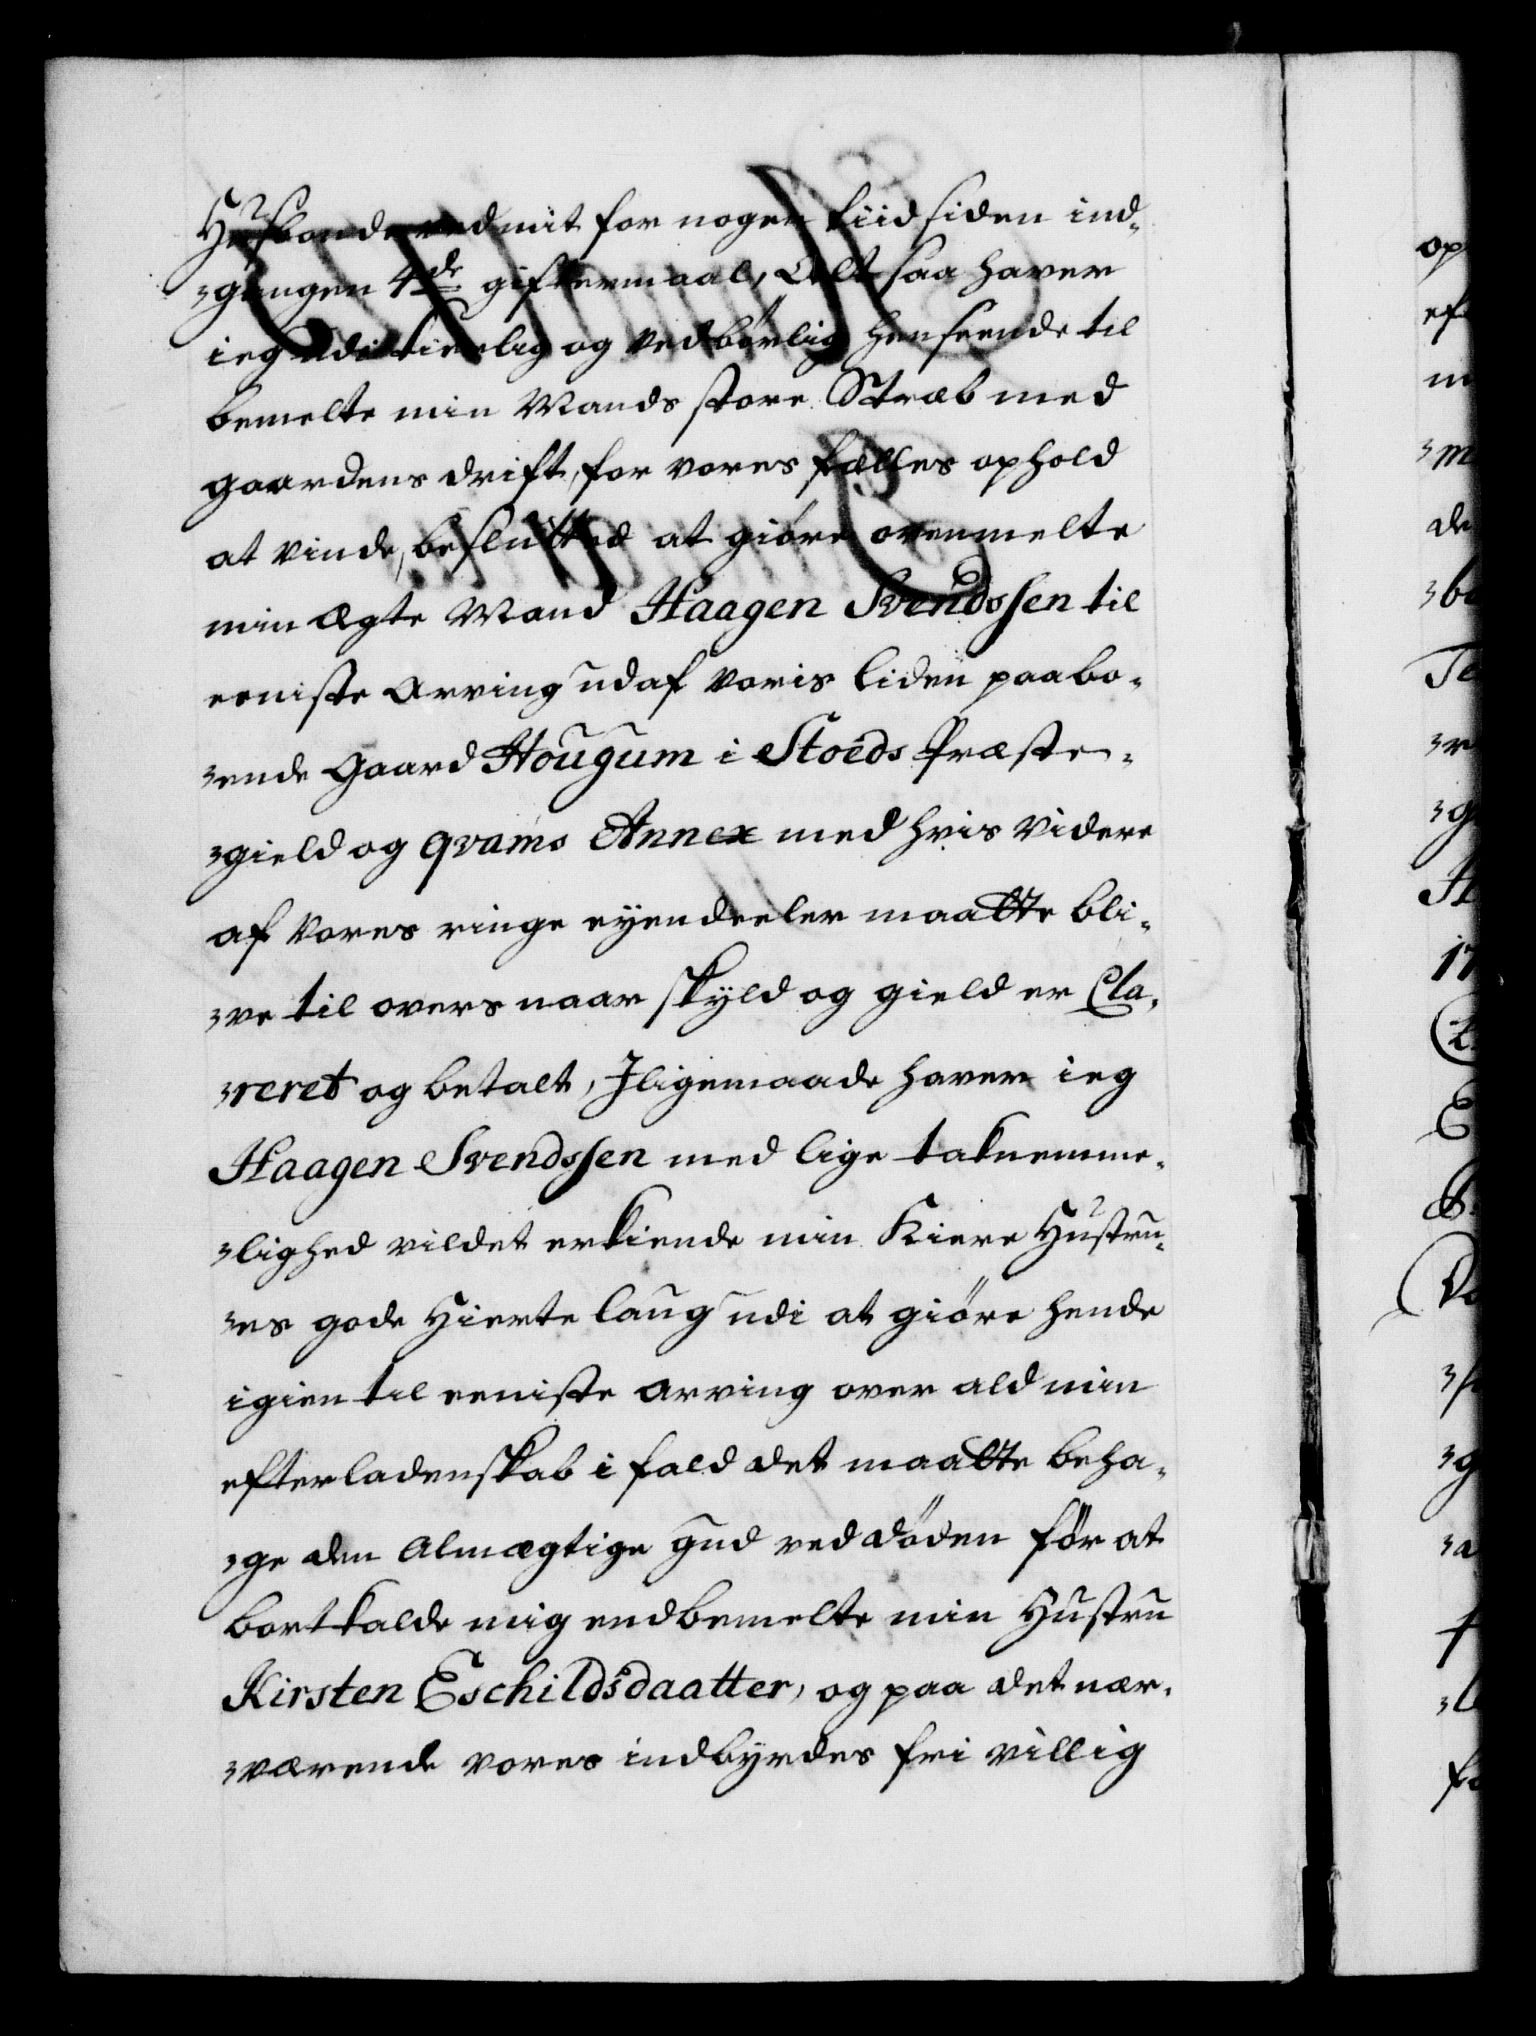 Husbonde ved mit for nogen tiid siden ind-
-gangen 4de giftermaal, Alt saa haver
ieg udi tienlig og vedbørlig henseende til
bemelte min Mands store Stræb med
gaardens drift, for vores fælles ophold
at vinde, beslutted at giøre ovenmelte
min ægte Mand Haagen Svendssen til
eeniste arving udaf voris liden paabo-
-ende gaard Hougum i Stoeds Præste-
-gield og qvams Annex med hvis videre
af vores ringe eyendeeler maatte bli-
-ve til overs naar skyld og gield er Cla-
-reret og betalt, Iligemaade haver ieg
Haagen Svendssen med lige taknemme-
-lighed vildet erkiende min Kiere Hustru-
-es gode Hierte laug udi at giøre hende
igien til eeniste arving over ald min
efterladenskab i fald det maatte beha-
-ge den Almægtige gud ved døden før at
bortkalde mig end bemelte min Hustru
Kirsten Eschildsdaatter, og paa det nær-
-værende vores indbyrdes fri villig